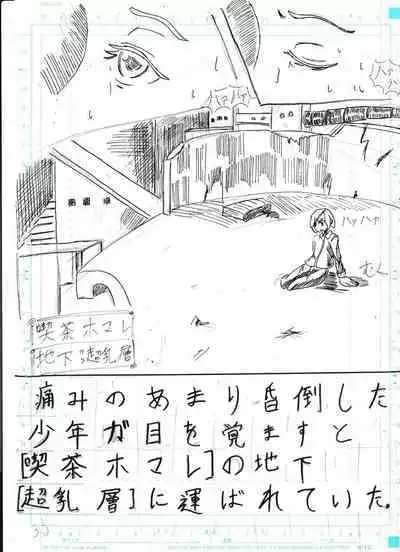 ハァハァ
ハァ
ハァ
ハァハァ
むく
喫茶ホマレ
地下超乳層
痛みのあまり昏倒した
少年が目を覚ますと
[喫茶ホマレ]の地下
[超乳層]に運ばれていた.